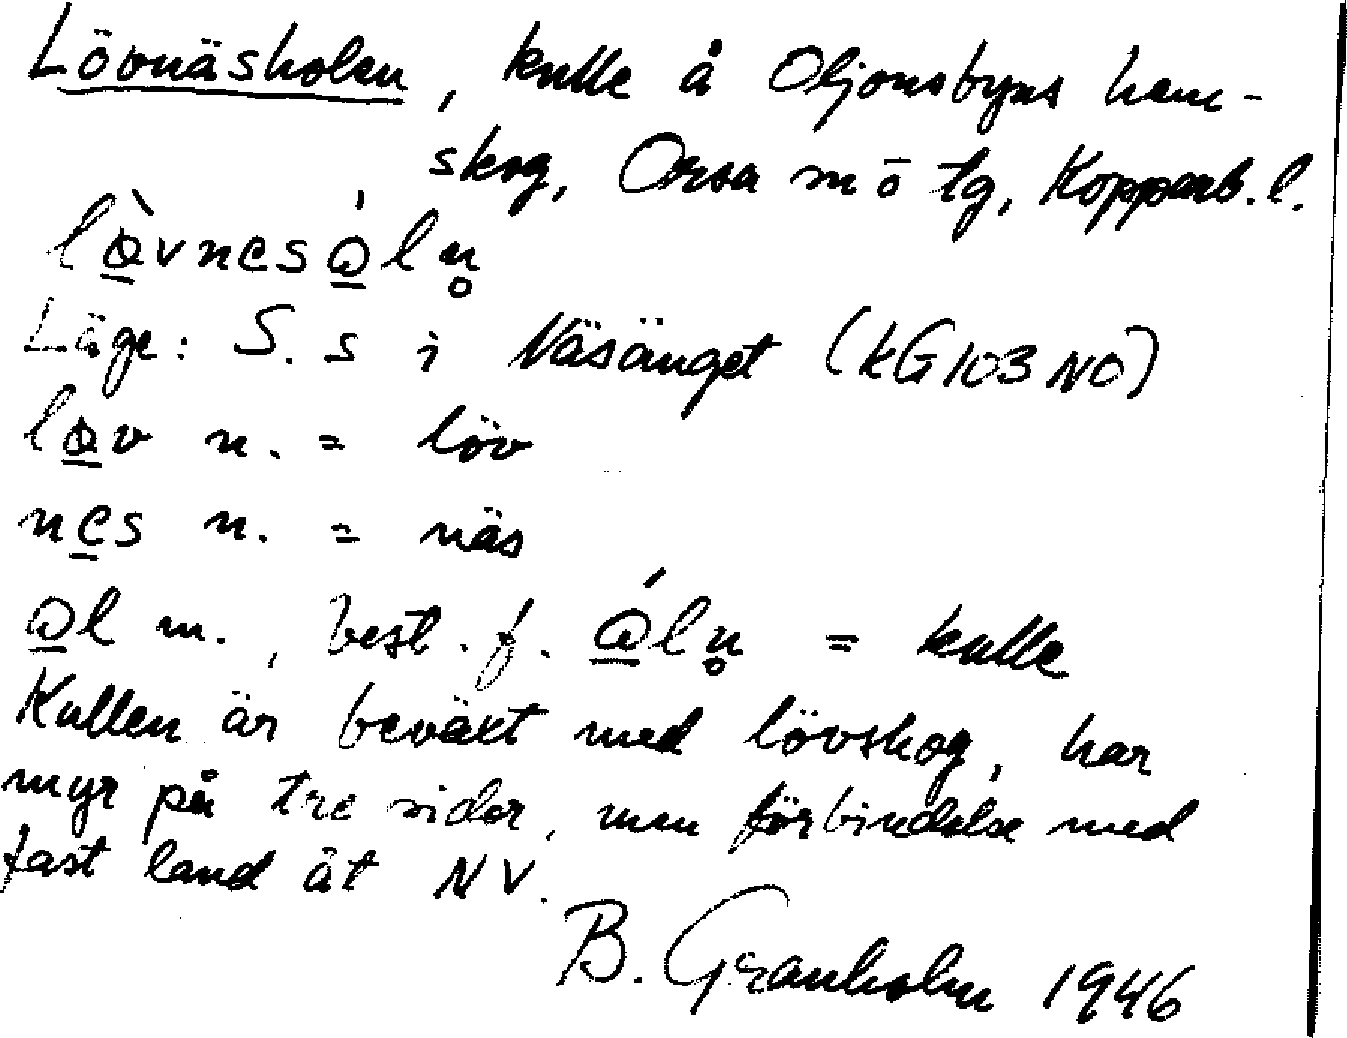 Lövnäsholen, kulle å Oljonsbyns hem-
skog, Orsa sn ö tg, Kopparb. l.
Läge: S. s i Näsänget (kG103NO)
n. = löv
nes n. = näs
m., best. f. = kulle
Kullen är beväxt med lövskog, har
myr på tre sidor, men förbindelse med
fast land åt NV.
B. Granholm 1946